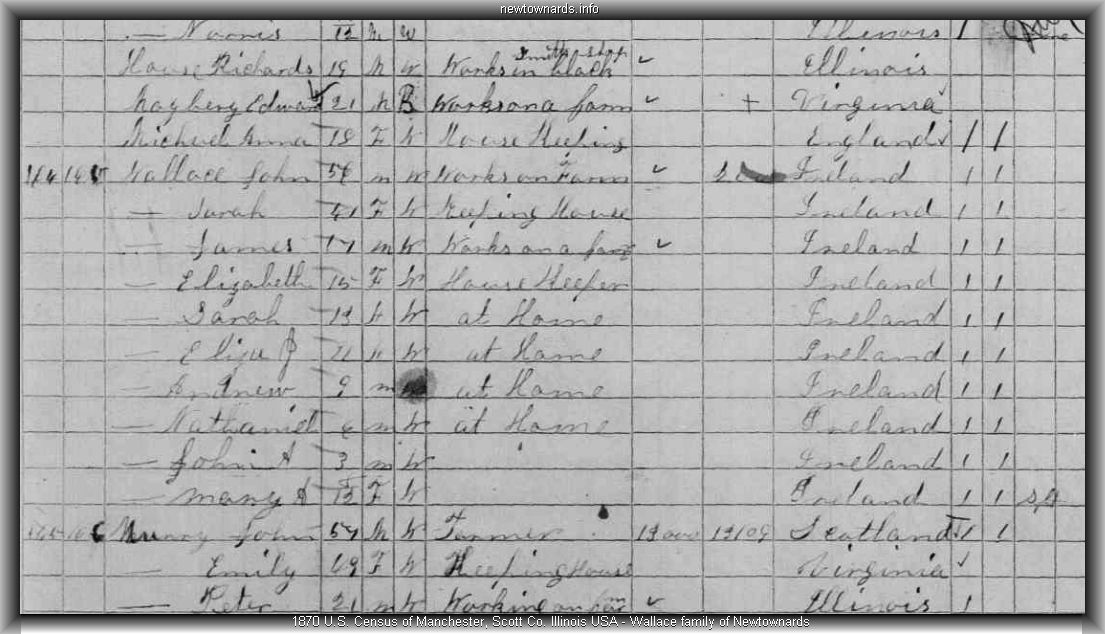 newtownards.info
— Norris 12 M W Illinois 1
House Richards 19 M W Works in black Smiths shop Illinois
Edward 21 M B Works on a farm + Virginia
Anna 18 F W House Keeping England 1 1
Wallace John M W Works on Farm Ireland 1 1
— Sarah 41 F W Keeping House Ireland 1 1
— James 17 M W Works on a farm Ireland 1 1
— Elizabeth 15 F W House Keeper Ireland 1 1
— Sarah 13 F W at Home Ireland 1 1
— Eliza J 11 F W at Home Ireland 1 1
— Andrew 9 m at Home Ireland 1 1
— Nathaniel 6 m W at Home Ireland 1 1
— John A 3 m W Ireland 1 1
— Mary A F W Ireland 1 1
John 57 M W Farmer Scotland 1 1
— Emily 49 F W Keeping House Virginia
— Peter 21 m W Working on farm Illinois 1
1870 U.S. Census of Manchester, Scott Co. Illinois USA - Wallace family of Newtownards